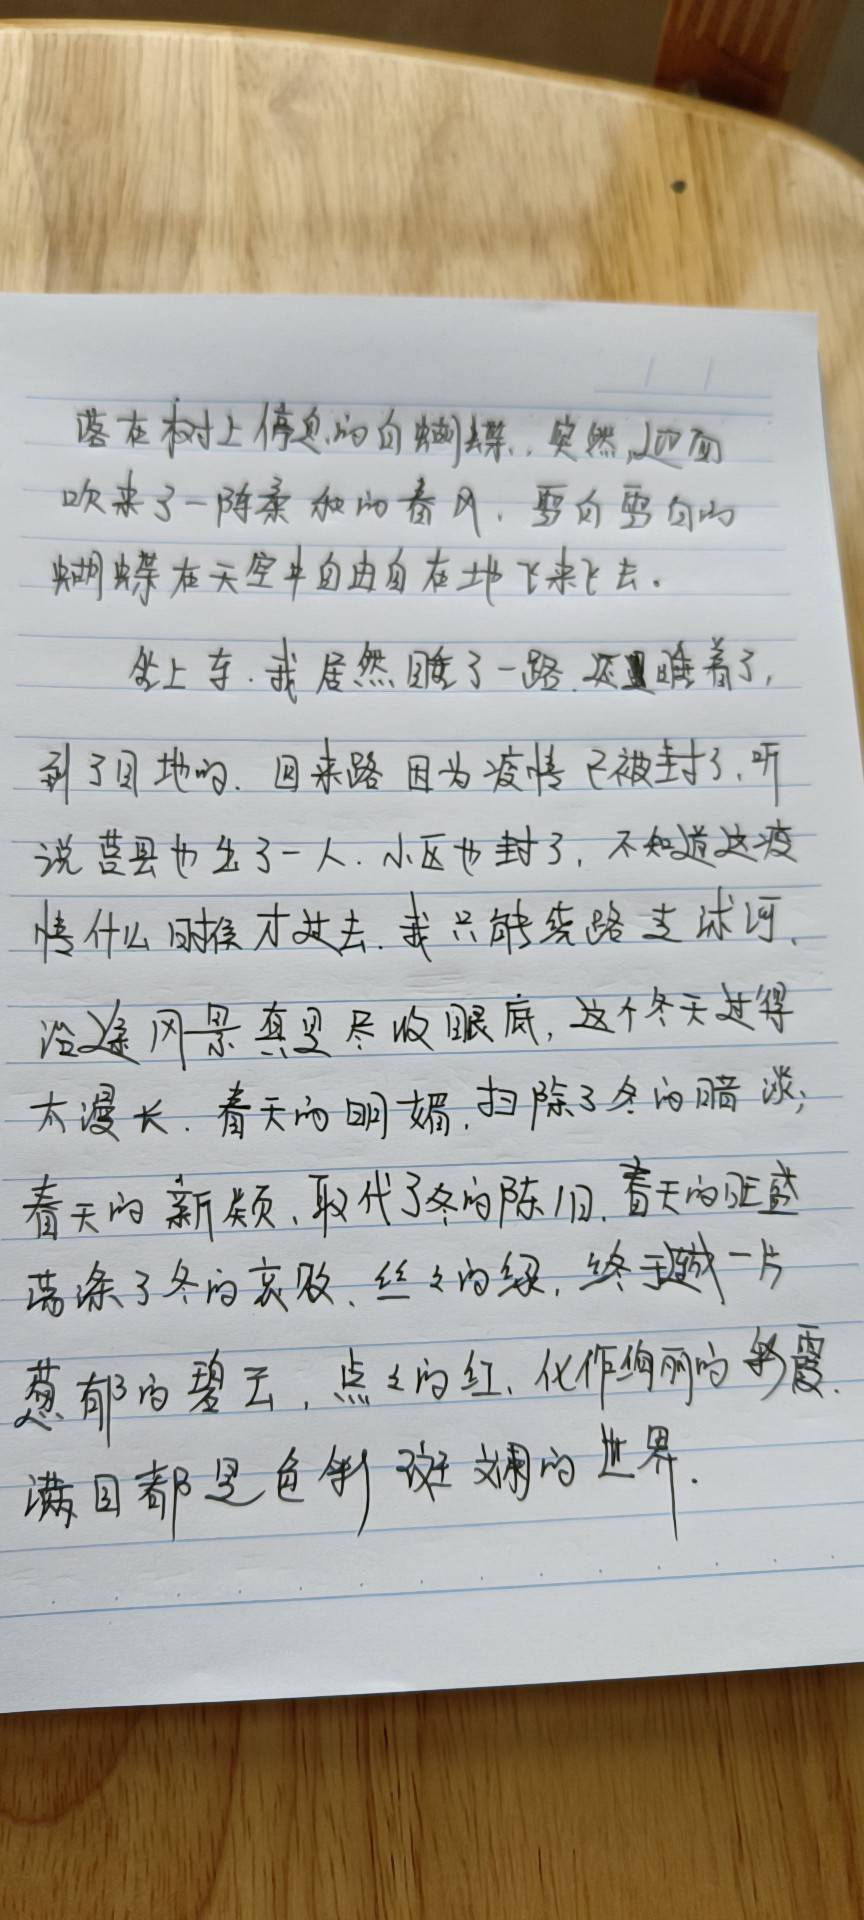 落在树上停息的白蝴蝶,突然,迎面
吹来了一阵柔和的春风,雪白雪白的
蝴蝶在天空中自由自在地飞来飞去.
坐上车.我居然睡了一路.还是睡着了,
到了目地的.回来路因为疫情已被封了,听
说莒县也生了一人.小区也封了,不知道这疫
情什么时候才过去.我只能绕路走沭河,
沿途风景真是尽收眼底,这个冬天过得
太漫长.春天的明媚,扫除了冬的暗淡;
春天的新颖,取代了冬的陈旧,春天的旺盛
荡涤了冬的衰败,丝々的绿,终于 一片
葱郁的碧云,点々的红,化作绚丽的彩霞.
满目都是色彩斑斓的世界.